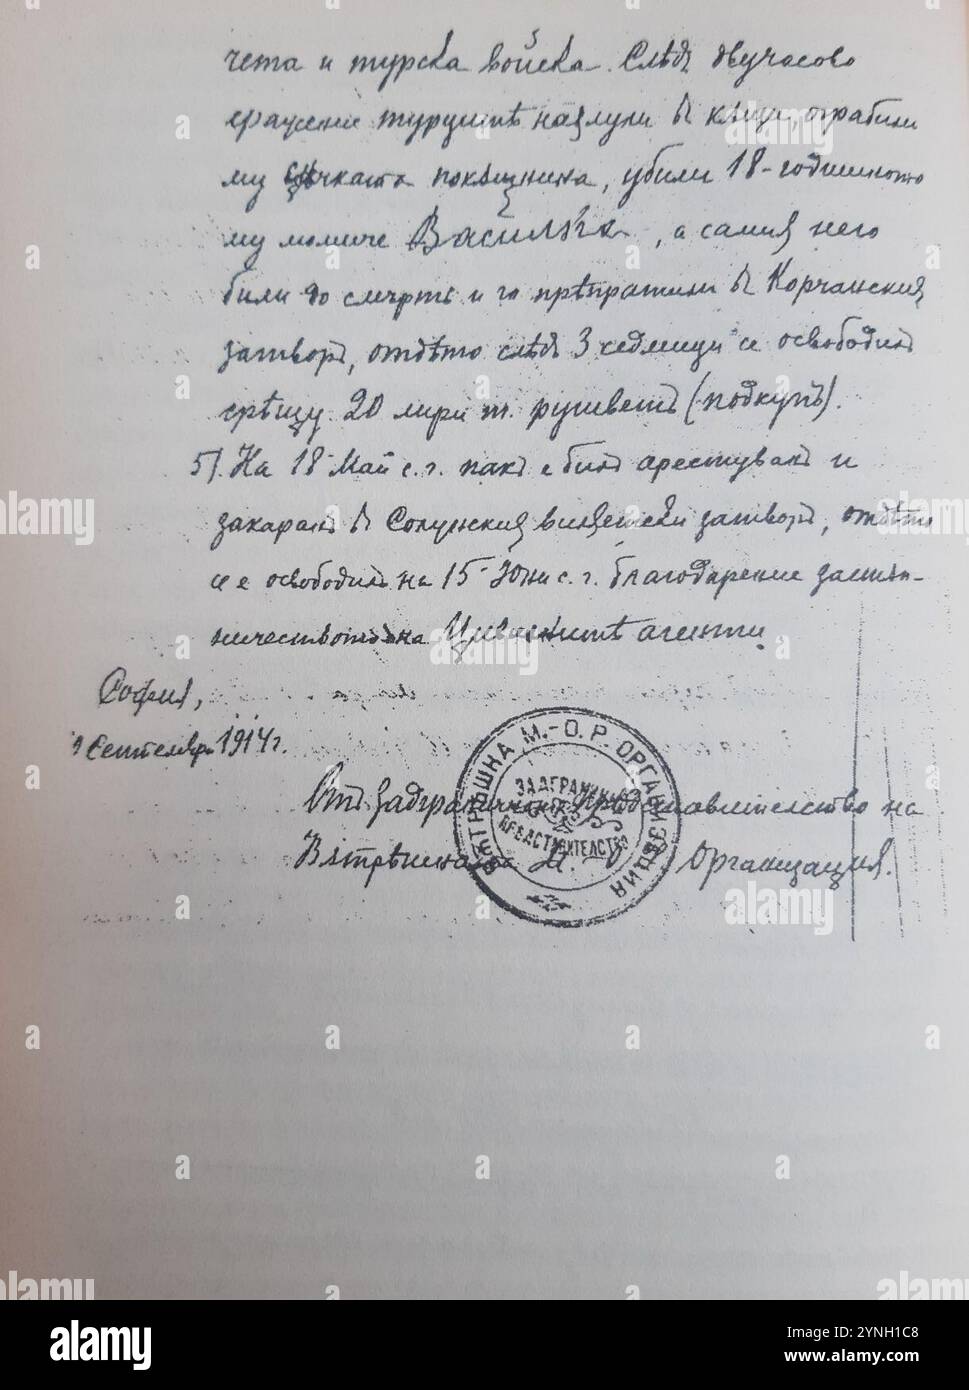 чета и турска войска. Слѣдъ двучасово
сражение турцитѣ нахлули въ кѫщи, ограбили
му сѣчката покѫщнина, убили 18-годишното
му момиче Василка, а самия него
били до смърть и го прѣпратили въ Корчанския
затворъ, отдѣто слѣдъ 3 седмици се освободилъ
срѣщу 20 лири т. рушветъ (подкупъ).
5). На 18 Май с. г. пакъ е билъ арестуванъ и
закаранъ въ Солунския вилаетски затворъ, отдѣто
се е освободилъ на 15 Юни с. г. благодарение застѫп-
ничеството на агенти.
София,
Септемврий 1914 г.
Отъ Задграничното прѣдставителство на
Вѫтрѣшната М. О. Р. Организация.
ВѪТРѢШНА М.-О. Р. ОРГАНИЗАЦИЯ
ЗАДГРАНИЧНО
ПРѢДСТАВИТЕЛСТВО
alamy
Image ID: 2YNH1C8
www.alamy.com